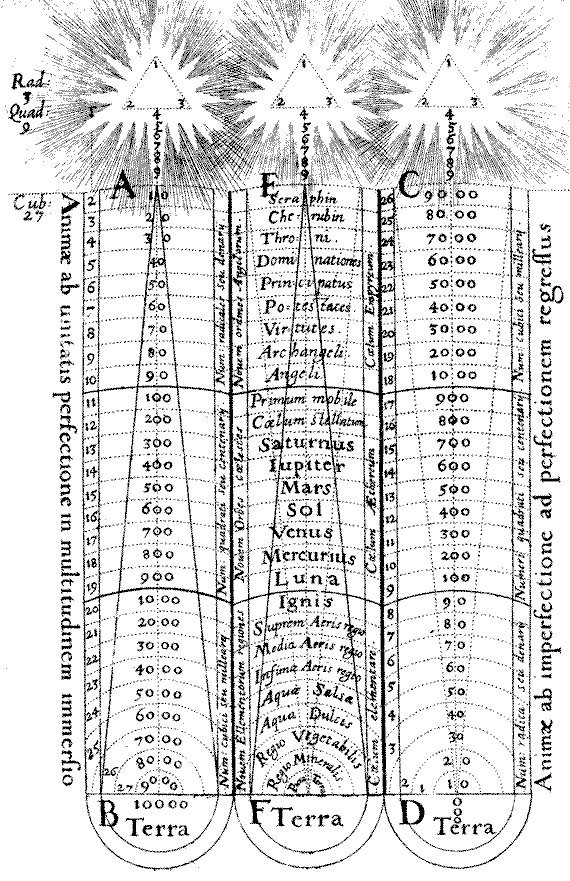 Rad
3
Quad:
9
Cub:
27
Animæ ab unitatis perfectione in multitudinem immersio
1
2 3
4
5
6
7
8
9
A
2 10
3 20
4 30
5 40
6 50
7 60
8 70
9 80
10 90
Num: radicales seu denarij
11 100
12 200
13 300
14 400
15 500
16 600
17 700
18 800
19 900
Num: quadrati seu centenarij
20 1000
21 2000
22 3000
23 4000
5000
24 6000
25 7000
26 8000
27 9000
Num: cubici seu millearij
B
10000
Terra
1
2 3
4
5
6
7
8
9
E
Seraphin
Cherubin
Throni.
Dominationes
Principatus
Potestates
Virtutes.
Archangeli
Angeli
Novem ordines Angelorum
Cœlum Empyreum
Primum mobile
Cœlum Stellatum
Saturnus
Iupiter
Mars
Sol
Venus
Mercurius
Luna
Novem Orbes cœlestes
Cœlum Æthereum
Ignis
Suprem Aeris regio
Media Aeris regio
Infimæ Aeris regio
Aqua Salsa
Aqua Dulcis
Regio Vegetabilis
Regio Mineralis
Novem Ellementorum regiones
Cœlum elementare
F
Terra
1
2 3
4
5
6
7
8
9
C
26 9000
25 8000
24 7000
23 6000
22 5000
21 4000
20 3000
19 2000
18 1000
Num: cubici seu millearij
17 900
16 800
15 700
14 600
13 500
12 400
11 300
10 200
9 100
Numeri quadrati seu centenarij
8 90
7 80
6 70
60
5 50
4 40
3 30
2 20
1 10
Num: radica: seu denarij
D
0
0
0
Terra
Animæ ab imperfectione ad perfectionem regressus